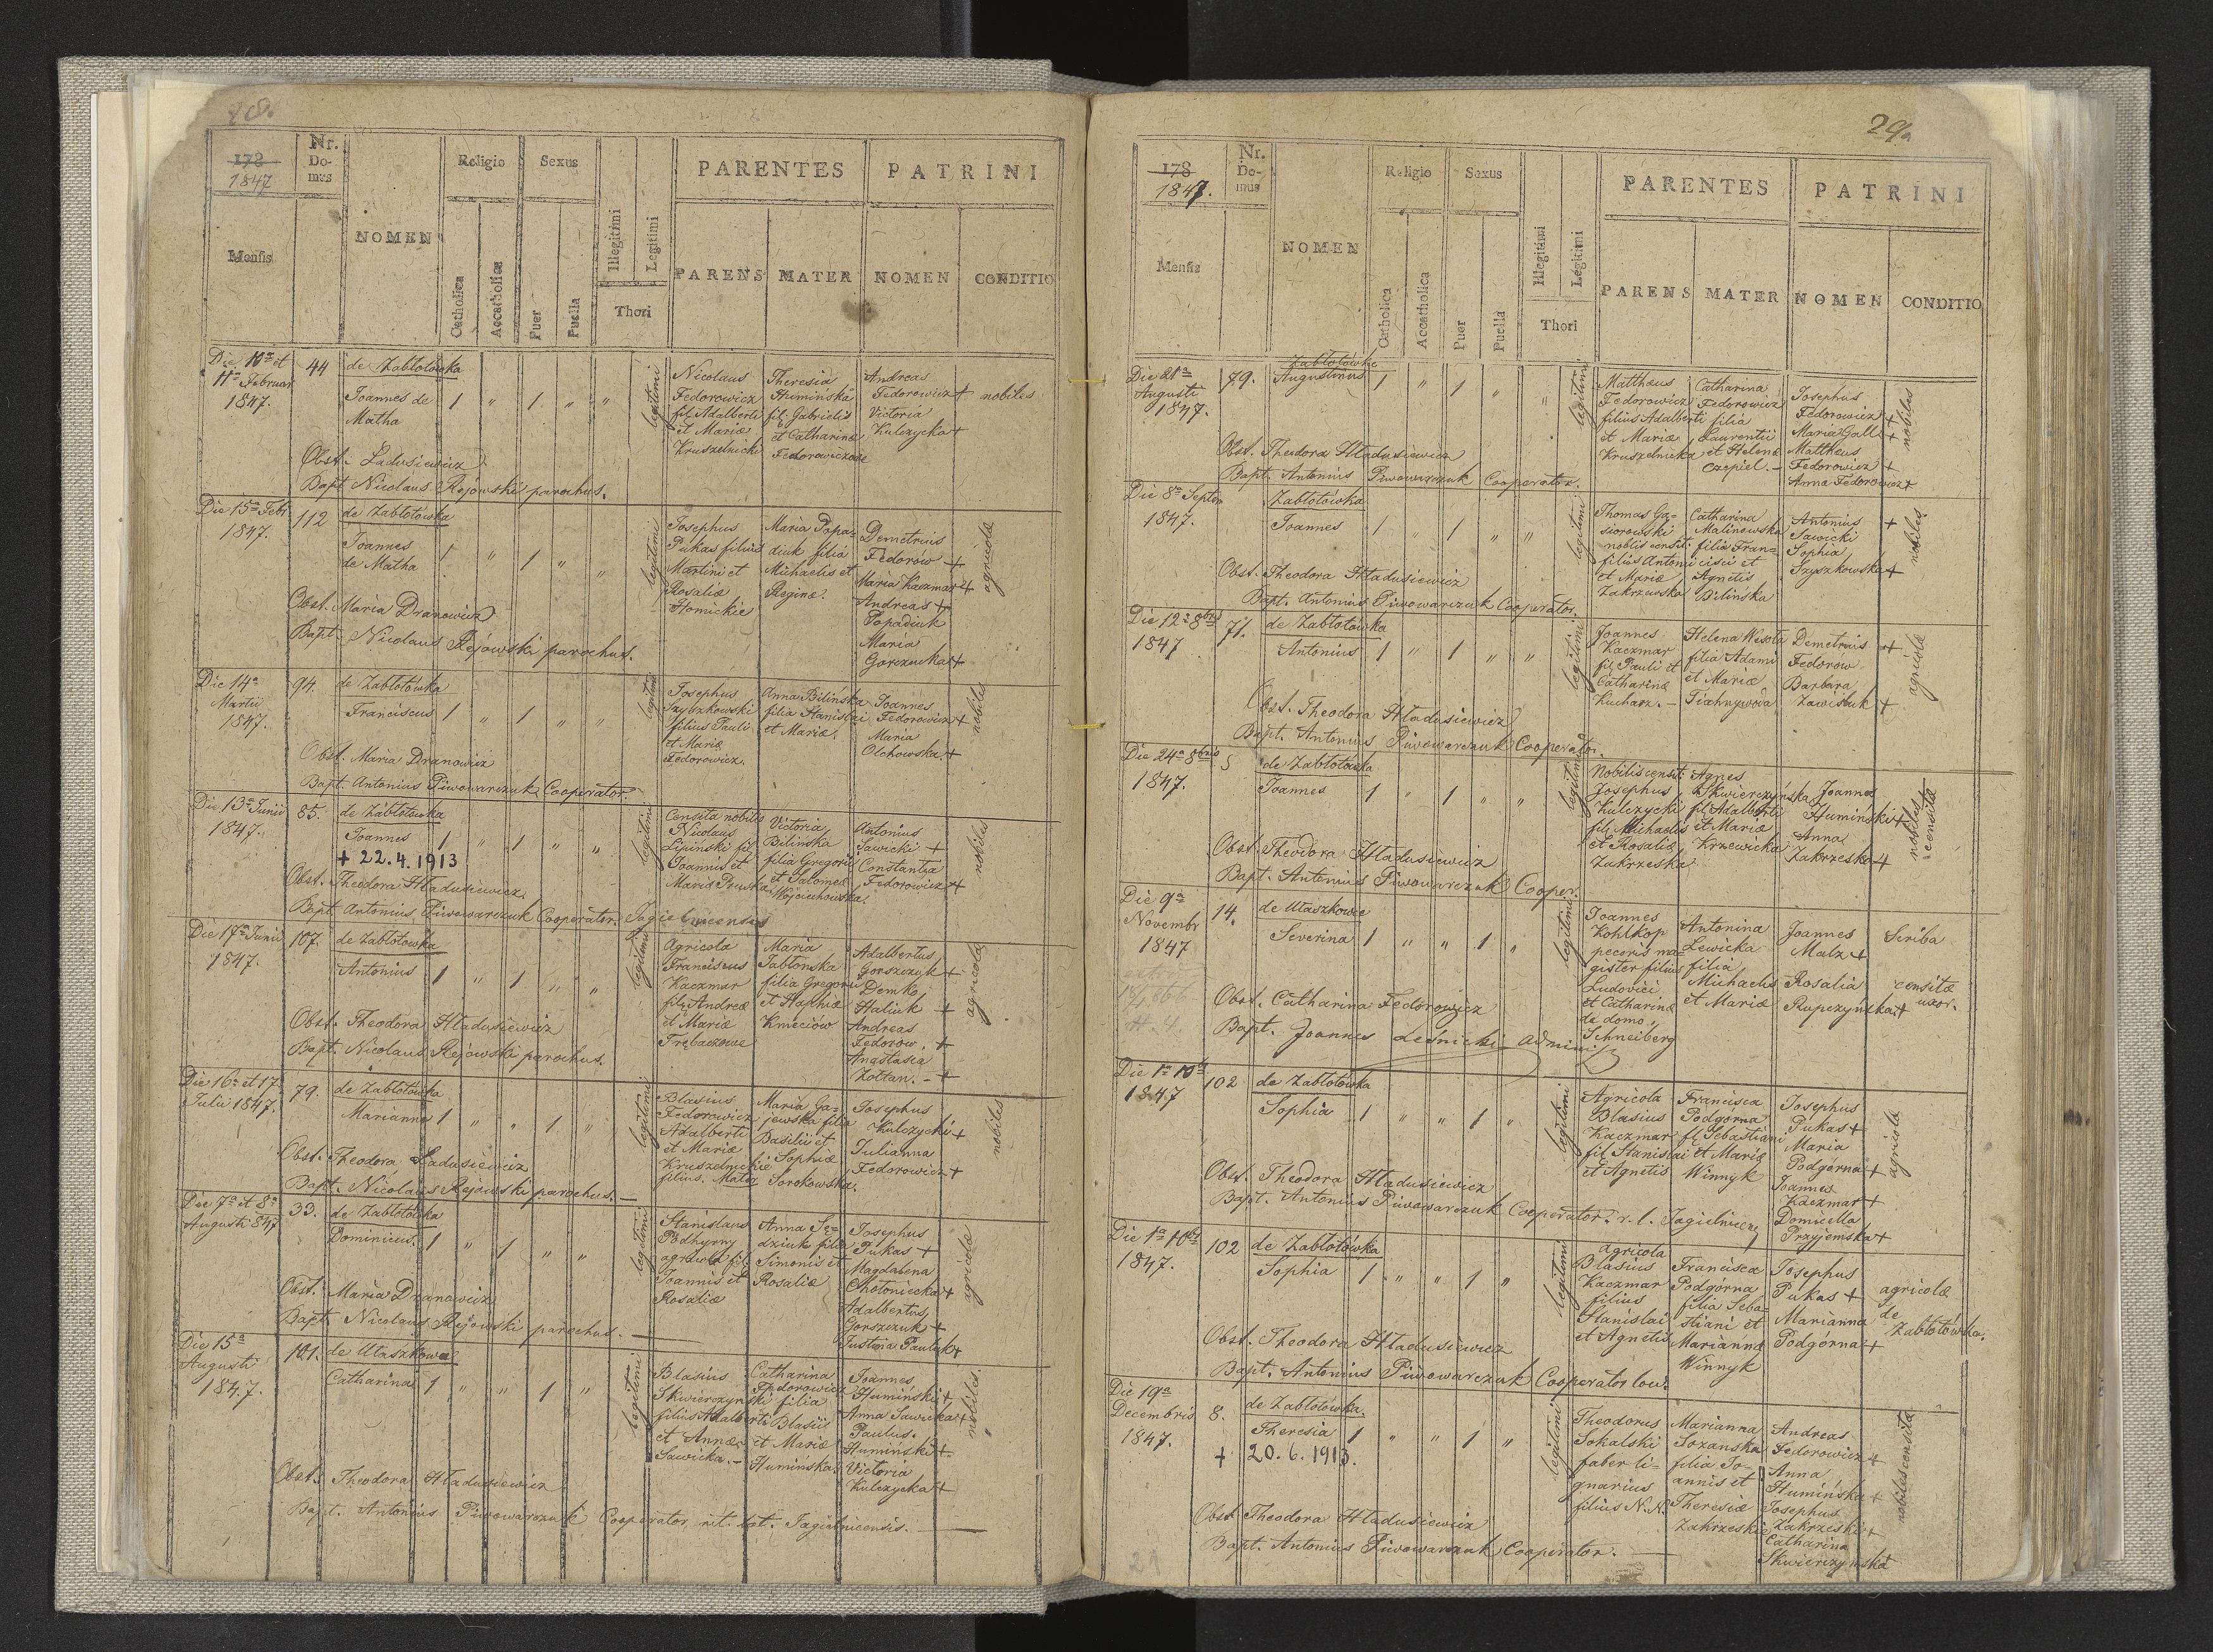 28.
178
1847
Nr. Domus
NOMEN
Religio
Sexus
Illegitimi
Legitimi
PARENTES
PATRINI
Mensis
Catholica
Accatholica
Puer
Puella
Thori
PARENS
MATER
NOMEN
CONDITIO
Die 10a et 11a Februar 1847.
44
de Zabłotówka
Joannes de Matha
1 " 1 " "
legitimi
Nicolaus Fedorowicz fil. Adalberti et Mariæ Kruszelnicki
Theresia Humińska fil. Gabrielis et Catharinæ Fedorowiczowe
Andreas Fedorowicz +
Victoria Kulczycka +
nobiles
Obst: Ładusiewicz
Bapt. Nicolaus Rejowski parochus.
Die 15a Febr 1847.
112
de Zabłotówka
Joannes de Matha
1 " 1 " "
legitimi
Josephus Pukas filius Martini et Rosaliæ Homickie
Maria Popadiuk filia Michaelis et Reginæ.
Demetrius Fedorow +
Maria Kaczmar +
Andreas + Popadiuk
Maria Gorczucka +
agricolæ
Obst. Maria Dranowicz
Bapt. Nicolaus Rejowski parochus.
Die 14a Martii 1847.
94.
de Zabłotówka
Franciscus
1 " 1 " "
legitimi
Josephus Szyszkowski filius Pauli et Mariæ Fedorowicz.
Anna Bilińska filia Stanislai et Mariæ.
Joannes Fedorowicz +
Maria Olchowska. +
nobiles
Obst. Maria Dranowicz
Bapt. Antonius Piwowarczuk Cooperator.
Die 13a Junii 1847.
85.
de Zabłotówka
Joannes
+ 22.4.1913
1 " 1 " "
legitimi
Consita nobilis Nicolaus Lipinski fil. Joannis et Mariæ
Victoria Bilińska filia Gregorii et Salomeæ Wojciechowska.
Antonius Sawicki +
Constantia Fedorowicz +
nobiles
Obst. Theodora Hładusiewicz
Bapt. Antonius Piwowarczuk Cooperator. Jagielnicensis
Die 17a Junii 1847.
107.
de Zabłotówka
Antonius
1 " 1 " "
legitimi
Agricola Franciscus Kaczmar fil. Andreæ et Mariæ Trębaczowe
Maria Jabłonska filia Gregorii et Haphiæ Kmeciów
Adalbertus Gorszczyk +
Demko Haliuk +
Andreas Fedorow. +
Anastasia Zołtan. - +
agricolæ
Obst. Theodora Hładusiewicz
Bapt. Nicolaus Rejowski parochus.
Die 16a et 17a Julii 1847.
79.
de Zabłotówka
Marianna
1 " " 1 "
legitimi
Blasius Fedorowicz Adalberti et Mariæ Kruszelnickie filius.
Maria Gajewska filia Basilii et Sophiæ Mater Sorokowska.
Josephus Kulczycki +
Julianna Fedorowicz +
nobiles
Obst. Theodora Ładusiewicz
Bapt. Nicolaus Rejowski parochus.
Die 7a et 8a Augusti 847
33.
de Zabłotówka
Dominicus.
1 " 1 " "
legitimi
Stanislaus Podhyrny agricola fil. Joannis et Rosaliæ
Anna Sędziuk filia Simonis et Rosaliæ
Josephus Pukas +
Magdalena Chotoniecka +
Adalbertus Gorszczuk +
Justina Pauluk +
agricolæ
Obst. Maria Dranowicz
Bapt. Nicolaus Rejowski parochus.
Die 15a Augusti 1847.
101.
de Ułaszkowce
Catharina
1 " " 1 "
legitimi
Blasius Skwierczynski filius Adalberti et Annæ Sawicka. -
Catharina Fedorowicz filia Blasii et Mariæ Humińska.
Joannes Humiński +
Anna Sawicka +
Paulus. Humiński +
Victoria Kulczycka +
nobiles.
Obst. Theodora Hładusiewicz
Bapt. Antonius Piwowarczuk Cooperator rit. lat. Jagielnicensis.
29.
178
1847.
Nr. Domus
NOMEN
Religio
Sexus
Illegitimi
Legitimi
PARENTES
PATRINI
Mensis
Catholica
Accatholica
Puer
Puella
Thori
PARENS
MATER
NOMEN
CONDITIO
Die 21a Augusti 1847.
79.
Zabłotówka
Augustinus
1 " 1 " "
legitimi
Mattheus Fedorowicz filius Adalberti et Mariæ Kruszelnicka
Catharina Fedorowicz filia Laurentii et Helenæ Czepiel. -
Josephus Fedorowicz +
Maria Gall +
Mattheus Fedorowicz +
Anna Fedorowicz +
nobiles
Obst. Theodora Hładusiewicz
Bapt. Antonius Piwowarczuk Cooperator.
Die 8a Septem 1847.
Zabłotówka
Joannes
1 " 1 " "
legitimi
Thomas Gasiorowski nobilis consit: filius Antonii et Mariæ Zakrzewska
Catharina Malinowska filia Francisci et Agnetis Bilińska
Antonius Sawicki +
Sophia Szyszkowska +
nobiles
Obst. Theodora Hładusiewicz
Bapt. Antonius Piwowarczuk Cooperator.
Die 12a 8bris 1847
71.
de Zabłotówka
Antonius
1 " 1 " "
legitimi
Joannes Kaczmar fil. Pauli et Catharinæ Kucharz. -
Helena Wesoła filia Adami et Mariæ Tiahnywoda
Demetrius Fedorow +
Barbara Zawisluk +
agricolæ
Obst. Theodora Hładusiewicz
Bapt. Antonius Piwowarczuk Cooperator.
Die 24a 8bris 1847.
5
de Zabłotówka
Joannes
1 " 1 " "
legitimi
Nobilis consit: Josephus Kulczycki fil. Michaelis et Rosaliæ Zakrzeska
Agnes Skwierczyńska fil. Adalberti et Mariæ Krzewicka
Joannes Humiński +
Anna Zakrzeska +
nobiles censitæ
Obst. Theodora Hładusiewicz
Bapt. Antonius Piwowarczuk Cooper.
Die 9a Novembr 1847
14.
de Ułaszkowce
Severina
1 " " 1 "
legitimi
Joannes Kohlkop pecoris magister filius Ludovici et Catharinæ de domo Schneiberg
Antonina Lewicka filia Michaelis et Mariæ
Joannes Malz +
Rosalia Rapczyńska +
Scriba
censitæ uxor.
Obst. Catharina Fedorowicz
Bapt. Joannes Leśnicki Admini
Die 1a 10bris 1847
102
de Zabłotówka
Sophia
1 " " 1 "
legitimi
Agricola Blasius Kaczmar fil Stanislai et Agnetis
Francisca Podgórna fil Sebastiani et Mariæ Winnyk
Josephus Pukas +
Maria Podgórna +
Joannes Kaczmar +
Domicella Przyjemska +
agricolæ
Obst. Theodora Hładusiewicz
Bapt. Antonius Piwowarczuk Cooperator. r. l. Jagielnicze
Die 1a 10bris 1847.
102
de Zabłotówka
Sophia
1 " " 1 "
legitimi
Agricola Blasius Kaczmar filius Stanislai et Agnetis
Francisca Podgórna filia Sebastiani et Mariannæ Winnyk
Josephus Pukas +
Marianna Podgórna +
agricolæ de Zabłotówka.
Obst. Theodora Hładusiewicz
Bapt. Antonius Piwowarczuk Cooperator
Die 19a Decembris 1847.
8.
de Zabłotówka.
Theresia
+ 20.6.1913.
1 " " 1 "
legitimi
Theodorus Sokalski faber lignarius filius N. N.
Marianna Sozanska filia Joannis et Theresiæ Zakrzeskie
Andreas Fedorowicz +
Anna Humińska +
Josephus Zakrzeski +
Catharina Skwierczynska
nobiles consitæ
Obst. Theodora Hładusiewicz
Bapt. Antonius Piwowarczuk Cooperator.